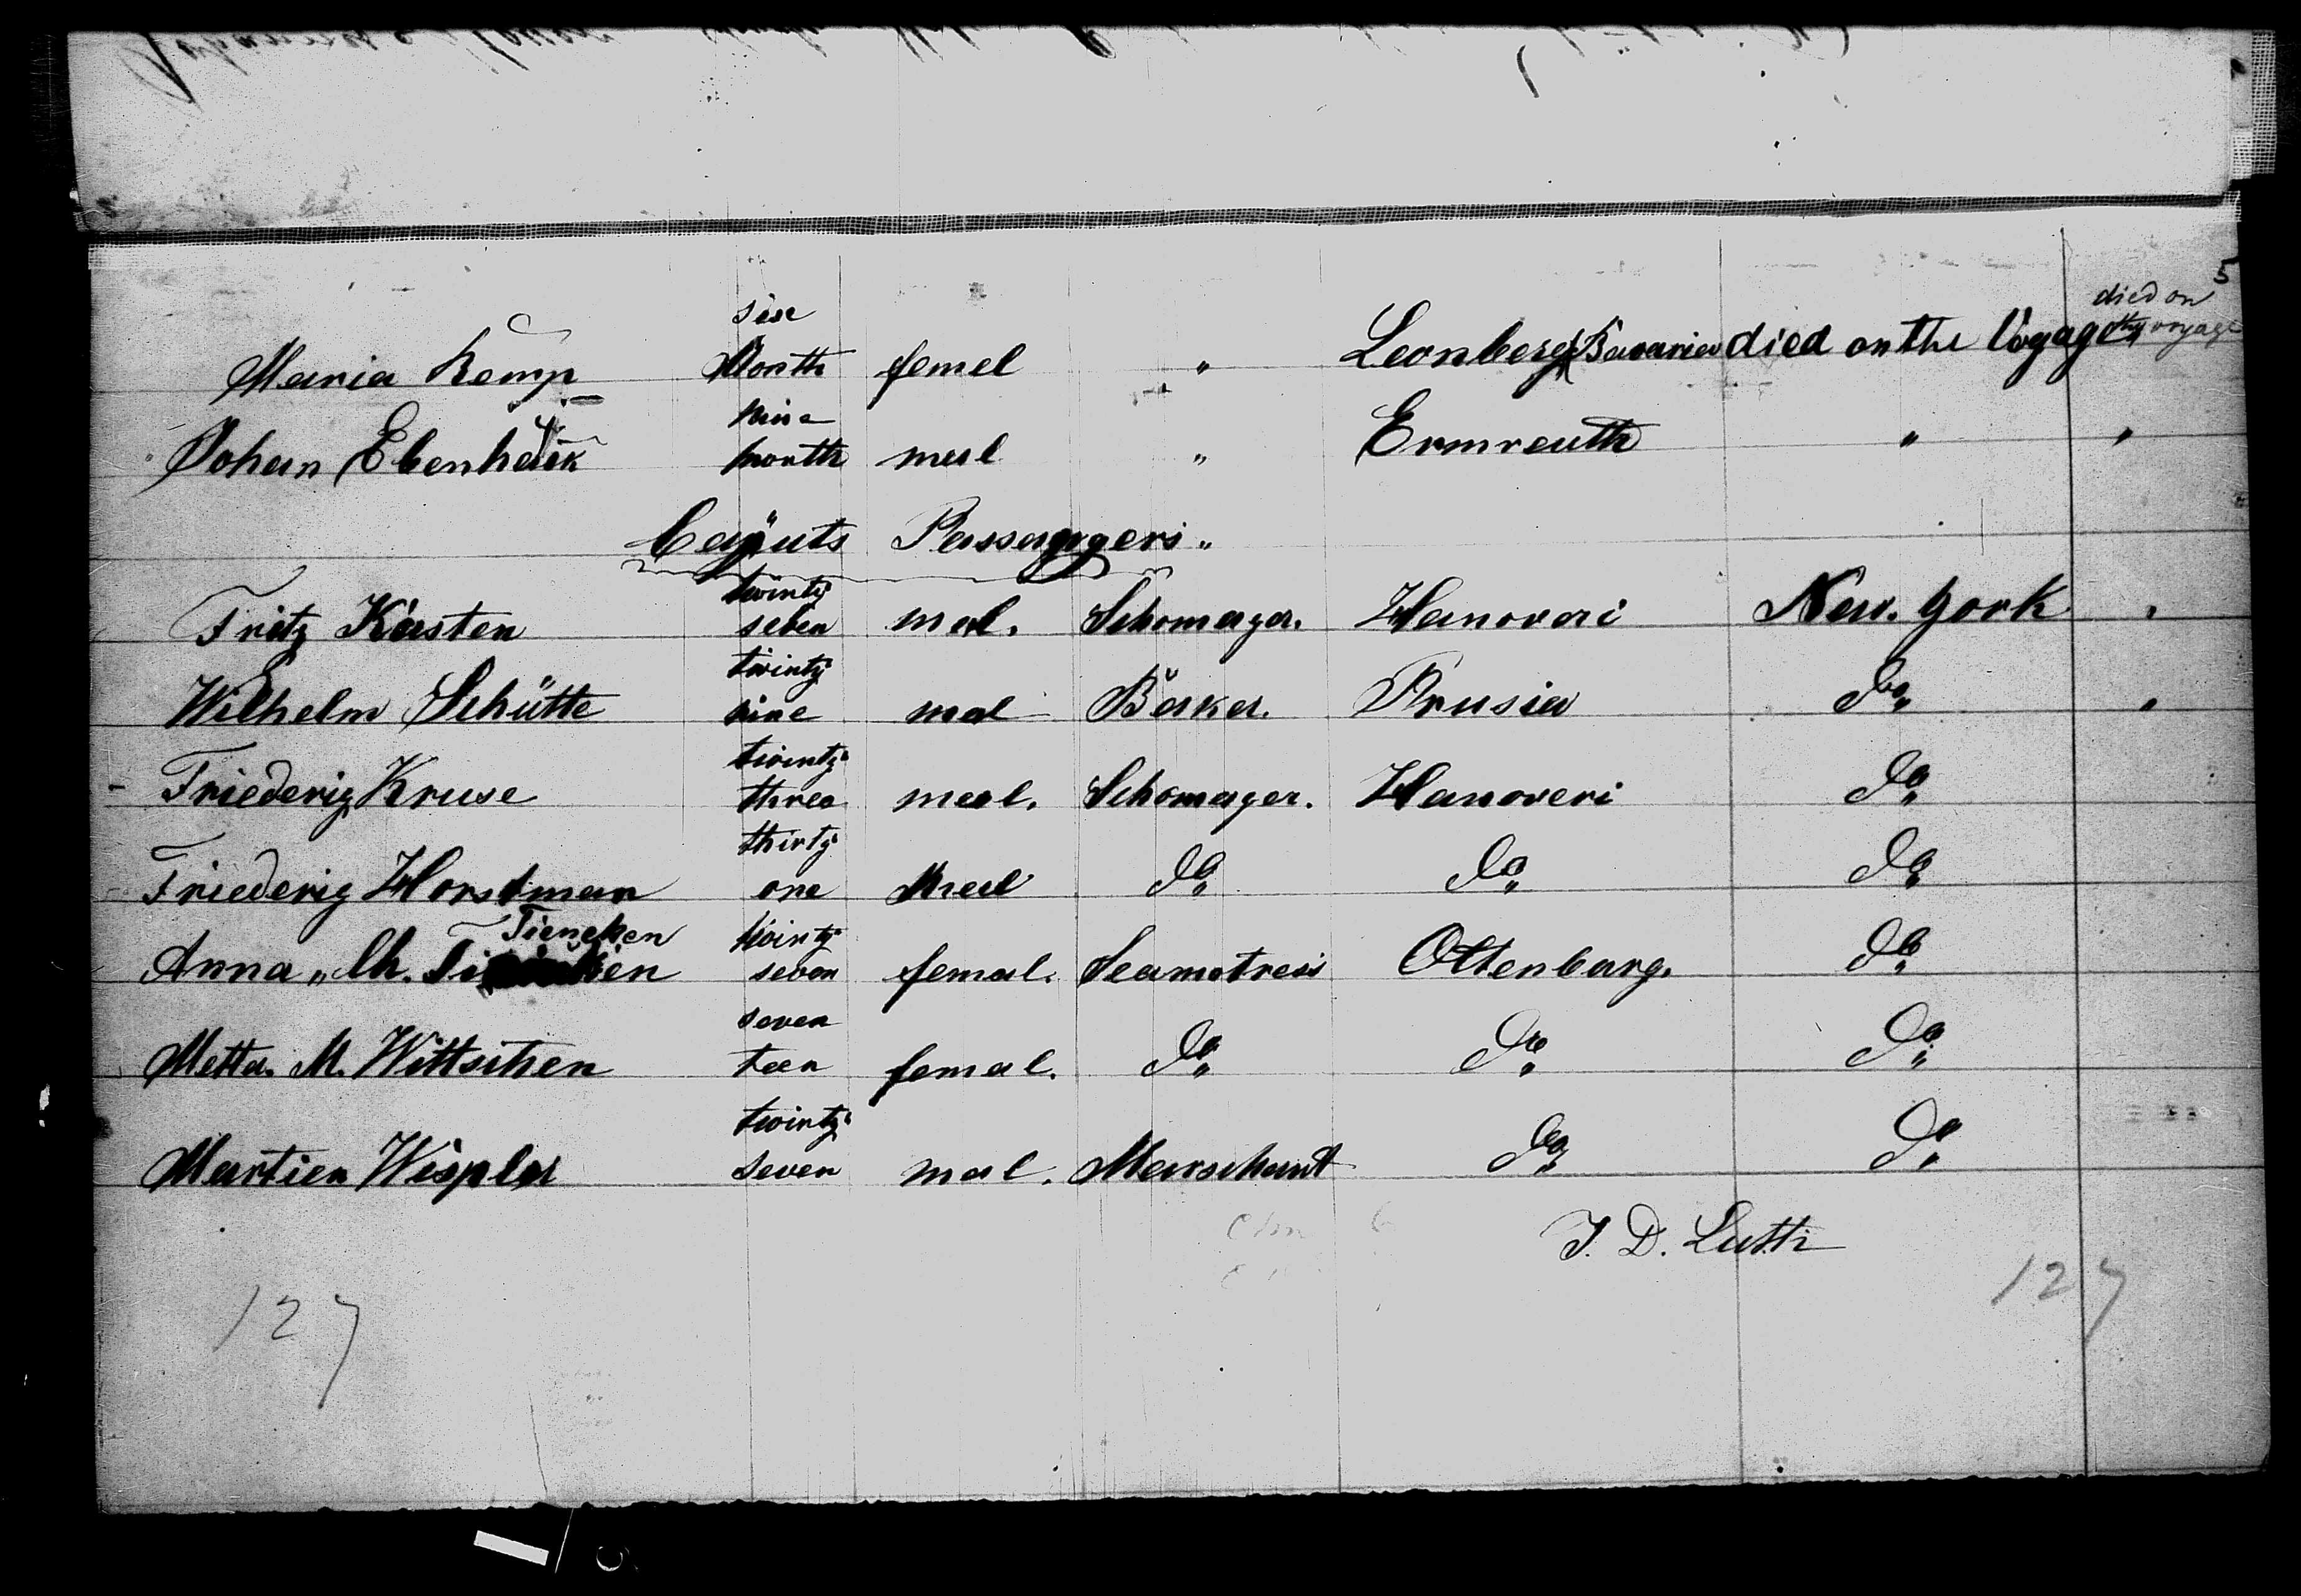 5
died on
the voyage
Maria Kemp sise Month femel " Leonberg Bavaria died on the Voyage
Johan Ebenhack nine month mal " Ermreuth " "
Cajüts Passaggeri "
Fritz Kästen twinty seben mal. Schomager. Hanoveri New. York "
Wilhelm Schütte twinty nine mal Bäker. Prusia do "
Friederig Kruse twinty three mal. Schomager. Hanoveri do
Friederig Horstman thirty one mal do do do
Tiencken
Anna " Ch. twinty seven femal. Seamstress Oltenburg. do
Metta. M. Wittschen seven teen femal. do do do
Martien Wispler twinty seven mal. Marschant do do
J. D. Luth
127 127